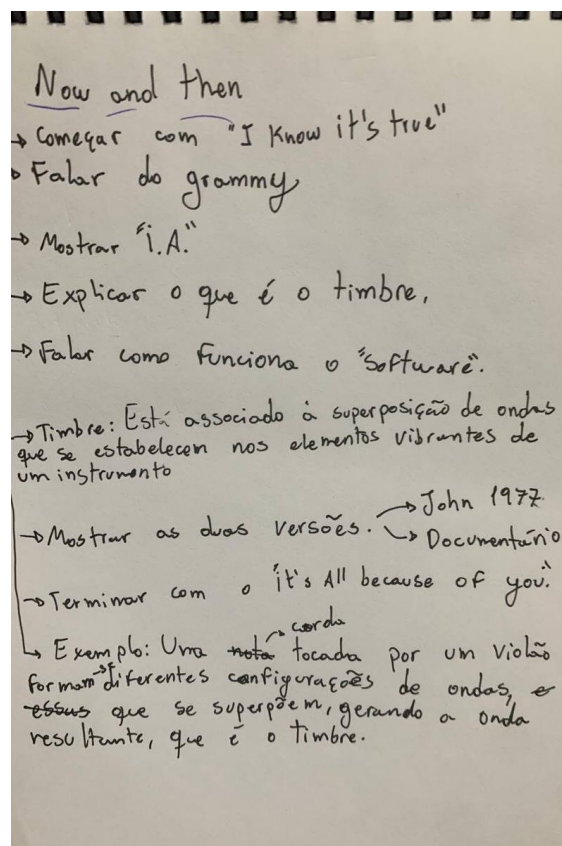 Now and then
→ Começar com "I know it's true"
→ Falar do grammy
→ Mostrar "I.A."
→ Explicar o que é o timbre,
→ Falar como funciona o "software".
→ Timbre: Está associado à superposição de ondas
que se estabelecem nos elementos vibrantes de
um instrumento
→ Mostrar as duas versões. → John 1977
→ Documentário
→ Terminar com o "it's All because of you."
→ corda
→ Exemplo: Uma ~~nota~~ tocada por um violão
formam → diferentes configurações de ondas, ~~e~~
~~essas~~ que se superpõem, gerando a onda
resultante, que é o timbre.